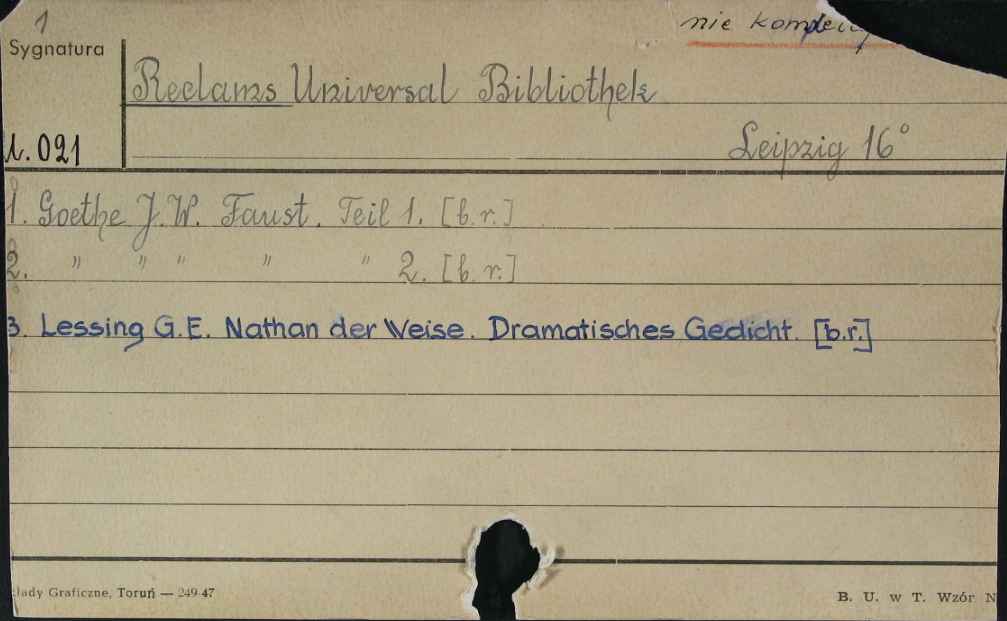 1
nie
Sygnatura
Reclams Universal Bibliothek
Leipzig 16°
021
1. Goethe J. W. Faust. Teil 1. [b.r.]
2. " " " " " 2. [b.r.]
3. Lessing G.E. Nathan der Weise. Dramatisches Gedicht. [b.r.]
łady Graficzne, Toruń — 249-47
B. U. w T. Wzór N